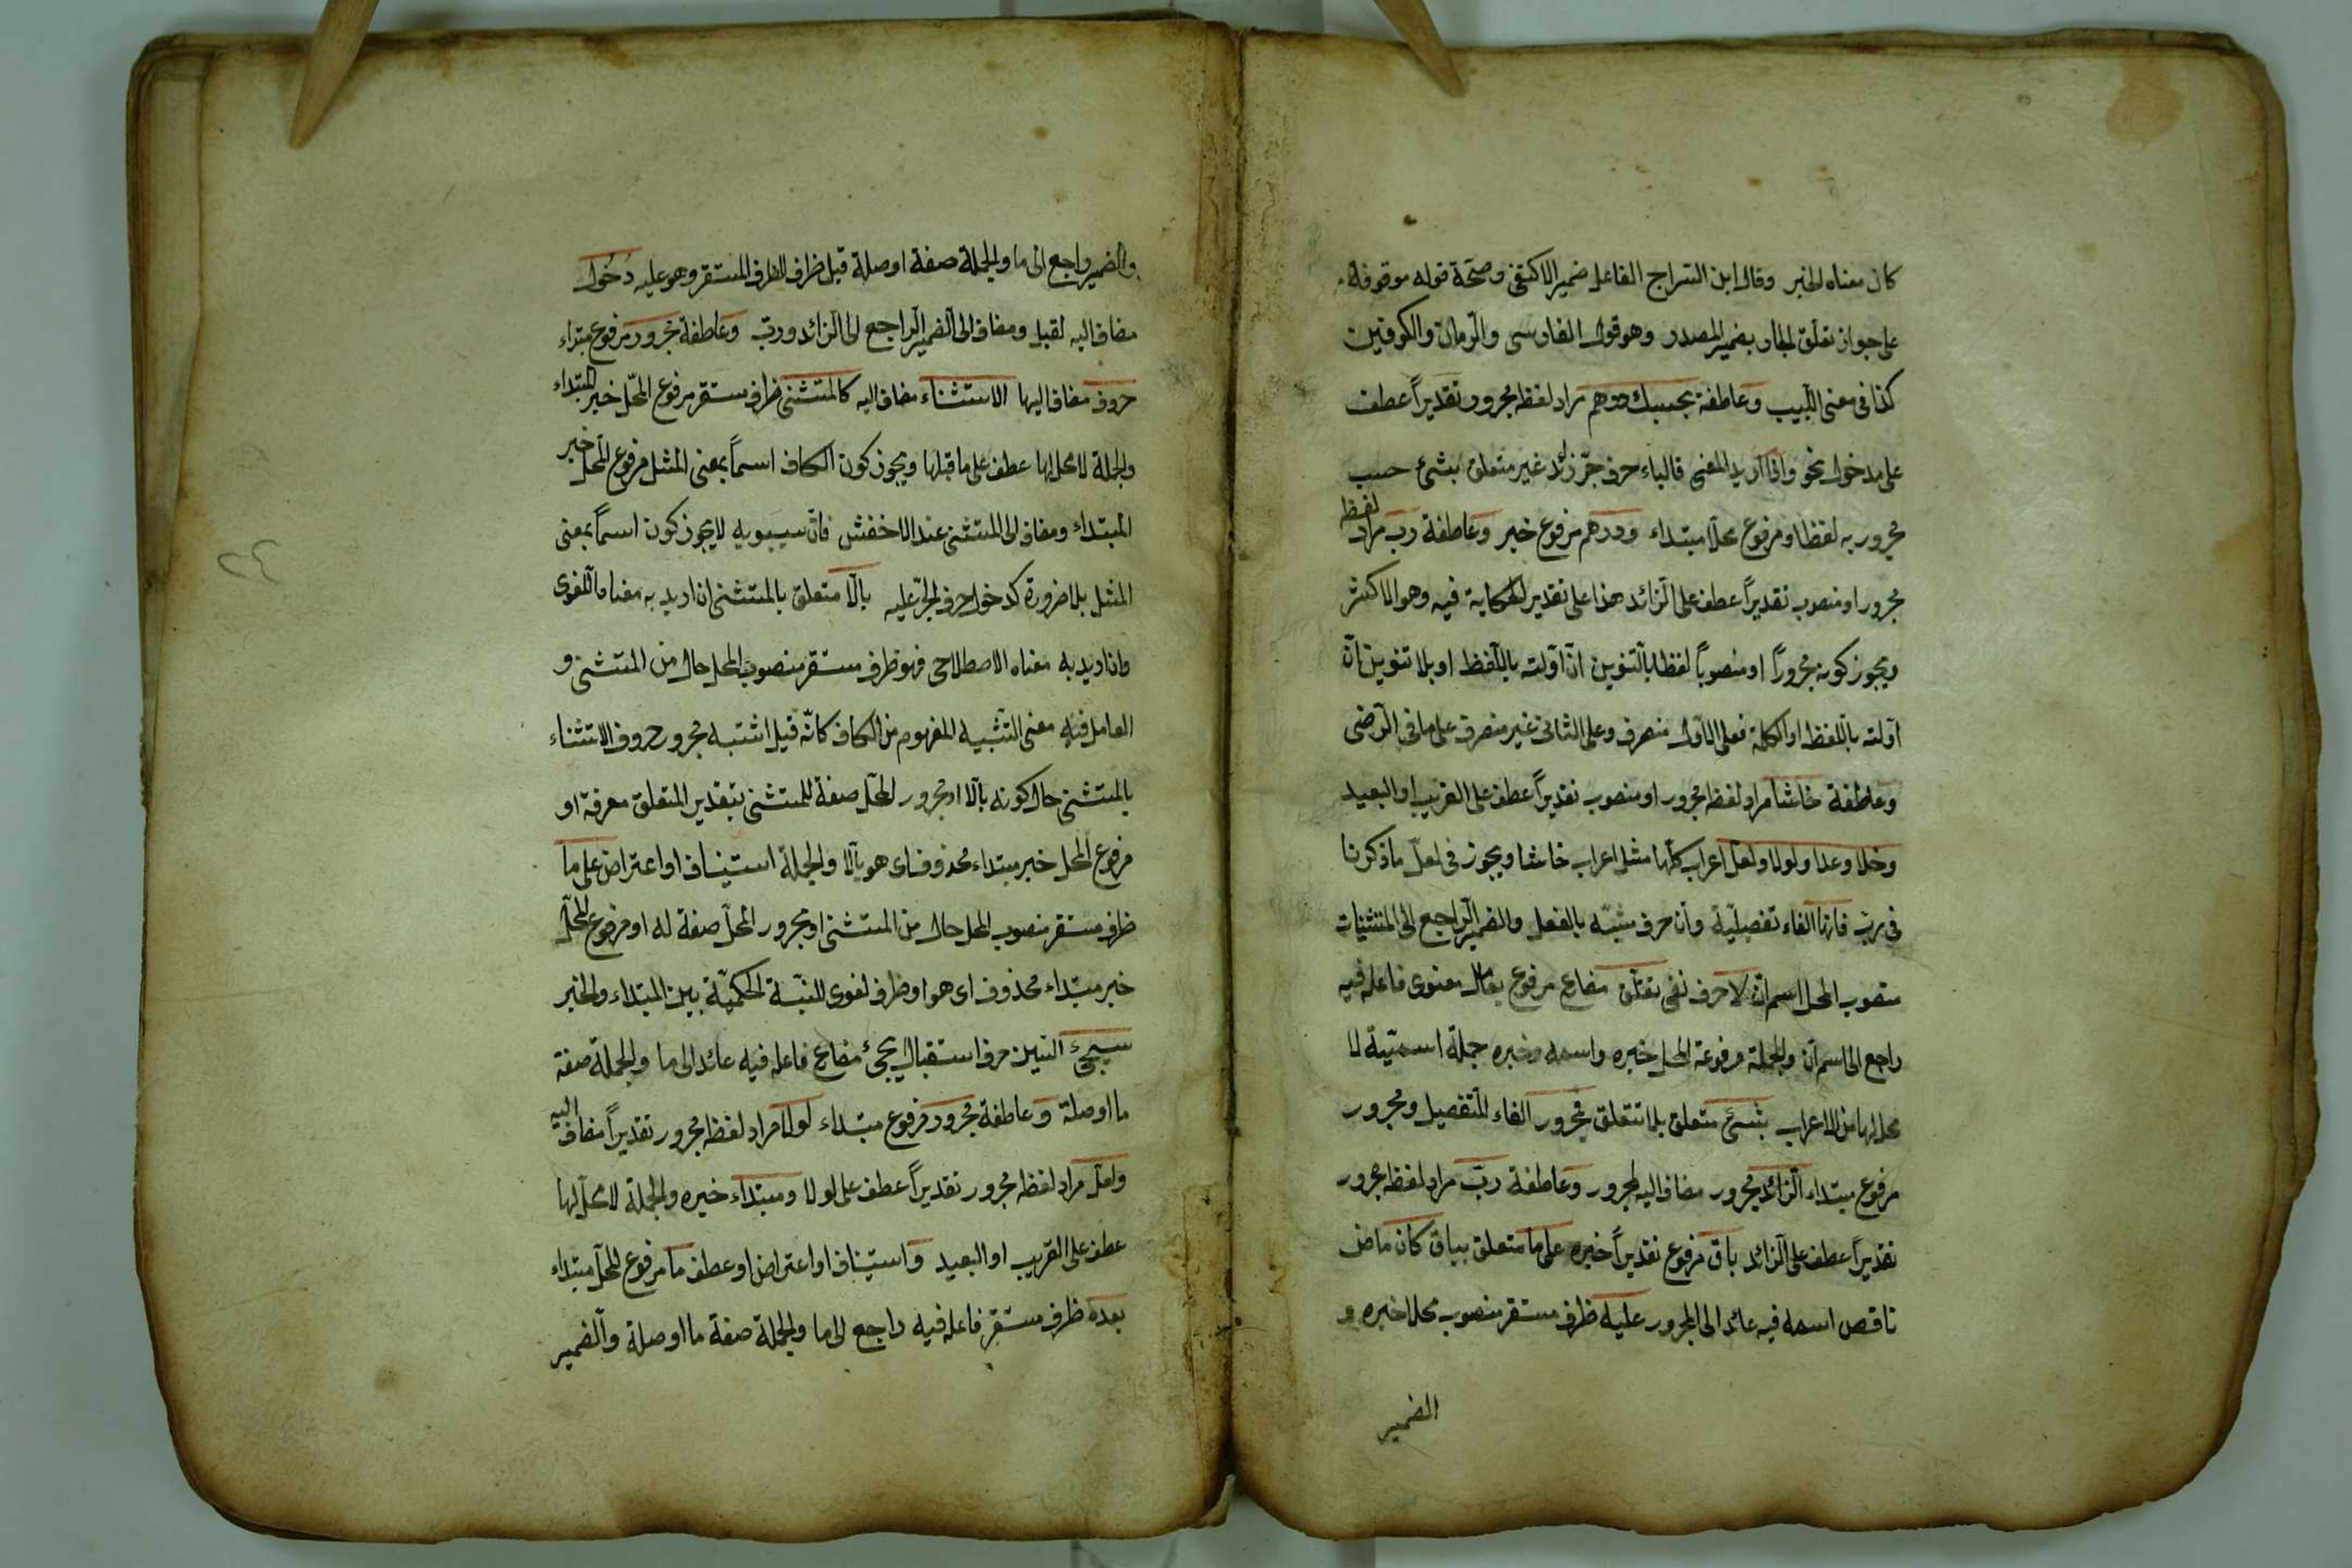 كان معناه الخبر وقال ابن السراج الفاعل ضمير الاكتفى وصحّة قوله موقوفة
على جواز تعلّق الجار بضمير المصدر وهو قول الفارسى والرّمانى والكوفيين
كذا فى معنى اللّبيب وعاطفة بحسبك درهم مراد لفظه مجرور تقديراً عطف
على مدخول نحو واذا اريد المعنى فالباء حرف جرّ زائد غير متعلق بشئ حسب
مجرور به لفظا ومرفوع محلا مبتداء ودرهم مرفوع خبر وعاطفة ربّ مراد لفظه
مجرور او منصوب تقديراً عطف على الزائد هذا على تقدير الحكاية فيه وهو الاكثر
ويجوز كونه مجروراً او منصوباً لفظا بالتنوين انْ اوّلته باللّفظ او بلا تنوين انْ
اوّلته باللّفظ او الكلمة فعلى الاوّل منصرف وعلى الثانى غير منصرف على ما فى الرّضى
وعاطفة حاشا مراد لفظه مجرور او منصوب تقديراً عطف على القريب او البعيد
وخلا وعدا ولولا ولعلّ اعراب كلّها مثل اعراب حاشا ويجوز فى لعلّ ما ذكرنا
فى ربّ فانها الفاء تفصيليّة وانّ حرف مشبّه بالفعل والضمير الراجع الى المستثنيات
منصوب المحل اسم انّ لا حرف نفى يتعلّق مضارع مرفوع بعامل معنوى فاعله فيه
راجع الى اسم انّ والجملة مرفوعة المحل خبره واسمه وخبره جملة اسميّة لا
محل لها من الاعراب بشئ متعلق بلا تتعلق فمجرور الفاء للتفصيل ومجرور
مرفوع مبتداء الزائد مجرور مضاف اليه لمجرور وعاطفة ربّ مراد لفظه مجرور
تقديراً عطف على الزائد باق مرفوع تقديراً خبره على ما متعلق بباق كان ماض
ناقص اسمه فيه عائد الى المجرور عليه ظرف مستقر منصوب محلا خبره و
الضمير
والضمير راجع الى ما والجملة صفة او صلة قبل ظرف الظرف المستقر وهو عليه دخول
مضاف اليه لقبل ومضاف الى الضمير الراجع الى الزائد وربّ وعاطفة مجرور مرفوع مبتداء
حروف مضاف اليها الاستثناء مضاف اليه كالمستثنى ظرف مستقر مرفوع المحل خبر المبتداء
والجملة لا محل لها عطف على ما قبلها ويجوز كون الكاف اسماً بمعنى المثل مرفوع المحل خبر
المبتداء ومضاف الى المستثنى عند الاخفش فانّ سيبويه لا يجوز كون اسماً بمعنى
المثل بلا ضرورة كدخول حرف الجرّ عليه بالّا متعلق بالمستثنى ان اريد به معناه اللّغوى
وان اريد به معناه الاصطلاحى فهو ظرف مستقر منصوب المحل حال من المستثنى و
العامل فيه معنى التّشبيه المفهوم من الكاف كانّه قيل اشتبه مجرور حروف الاستثناء
بالمستثنى حال كونه بالّا او مجرور المحلّ صفة للمستثنى بتقدير المتعلق معرفة او
مرفوع المحل خبر مبتداء محذوف اى هو بالّا والجملة استيناف او اعتراض على ما
ظرف مستقر منصوب المحل حال من المستثنى او مجرور المحلّ صفة له او مرفوع المحلّ
خبر مبتداء محذوف اى هو او ظرف لغوى للنسبة الحكميّة بين المبتداء والخبر
سيجئ السّين حرف استقبال يجئ مضارع فاعله فيه عائد الى ما والجملة صفة
ما او صلة وعاطفة مجرور مرفوع مبتداء لولا مراد لفظه مجرور تقديراً مضاف اليه
ولعلّ مراد لفظه مجرور تقديراً عطف على لولا ومبتداء خبره والجملة لا محلّ لها
عطف على القريب او البعيد و استيناف او اعتراض او عطف ما مرفوع المحلّ مبتداء
بعده ظرف مستقر فاعله فيه راجع الى ما والجملة صفة ما او صلة والضمير